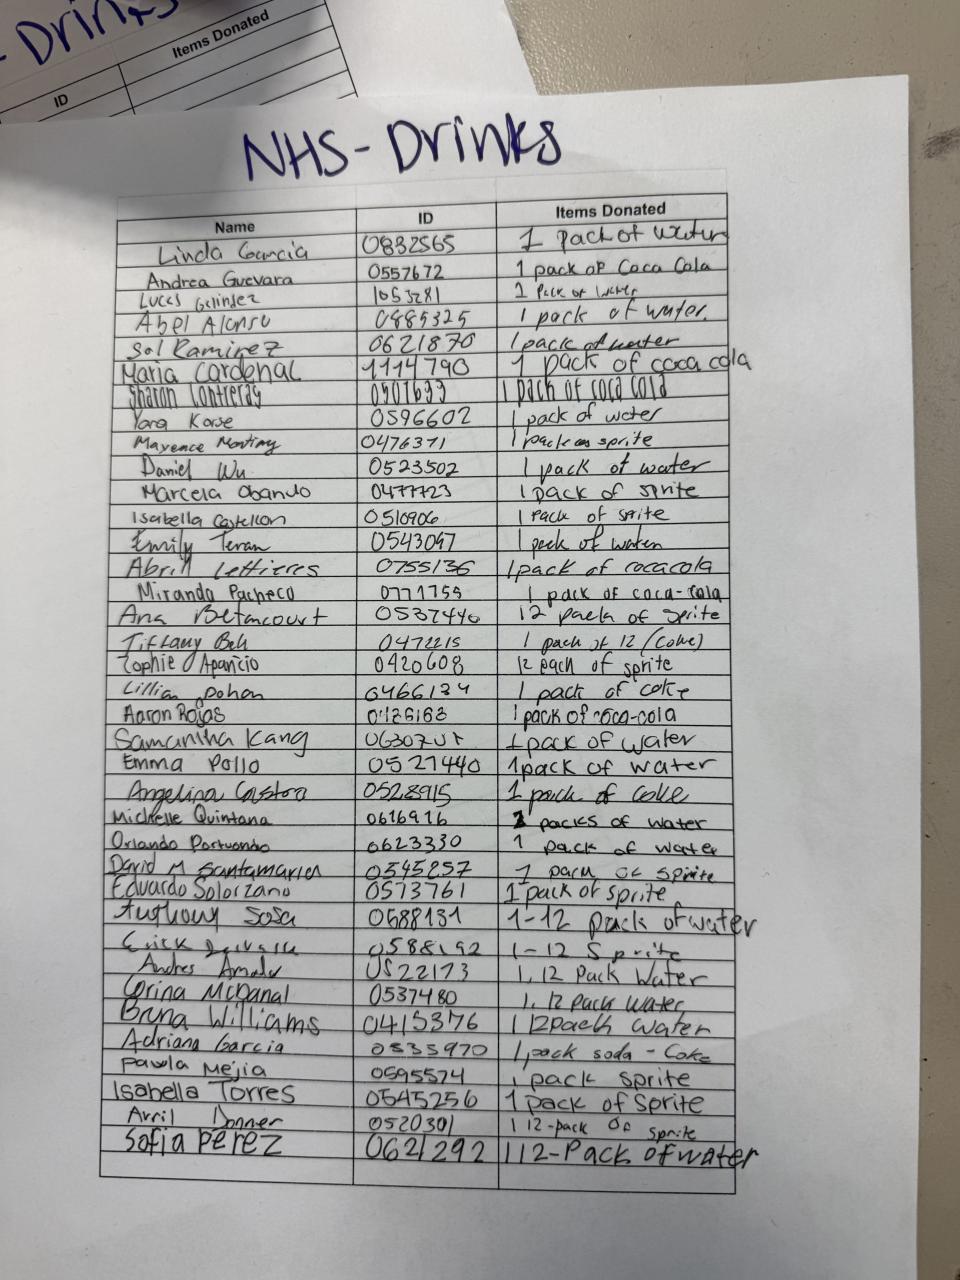 - Drinks
ID Items Donated
NHS- Drinks
Name ID Items Donated
Linda Garcia 0832565 1 pack of water
Andrea Guevara 0557672 1 pack of Coca Cola
Lucas 1053281 1 Pack of water
Abel Alonso 0885325 1 pack of water.
Sol Ramirez 0621870 1 pack of water
Maria Cardenal 1114790 1 pack of coca cola
Sharon Contreras 0901633 1 pack of coca cola
Yara Korse 0596602 1 pack of water
Mayence 0476371 1 pack as sprite
Daniel Wu 0523502 1 pack of water
Marcela Obando 0477723 1 pack of sprite
Isabella Castellon 0510906 1 Pack of srite
Emily Teran 0543047 1 pack of water
Abril Lettieres 0755136 1 pack of cocacola
Miranda Pacheco 0771755 1 pack of coca-cola
Ana Betancourt 0537446 12 pack of Sprite
Tiffany 0472215 1 pack of 12 (coke)
Sophie Aparicio 0420608 12 pack of sprite
Lillian Dohan 0466134 1 pack of coke
Aaron Rojas 1 pack of coca-cola
Samantha Kang 1 pack of water
Emma Pollo 0527440 1 pack of water
Angelina Castro 0528915 1 pack of coke
Michelle Quintana 0616916 packs of water
Orlando Portuondo 0623330 1 pack of water
David M Santamaria 0545257 1 pack of sprite
Eduardo Solorzano 0573761 1 pack of sprite
Anthony Sosa 0588131 1-12 pack of water
Erick 0588192 1-12 Sprite
Andres 0522173 1, 12 Pack Water
Corina McDanal 0537480 1, 12 pack water
Brina Williams 0415376 1 12pack water
Adriana Garcia 0535970 1 pack soda - Coke
Paola Mejia 0595574 1 pack sprite
Isabella Torres 0545256 1 pack of Sprite
Avril Donner 0520301 1 12-pack of sprite
Sofia Perez 0621292 1 12-Pack of water